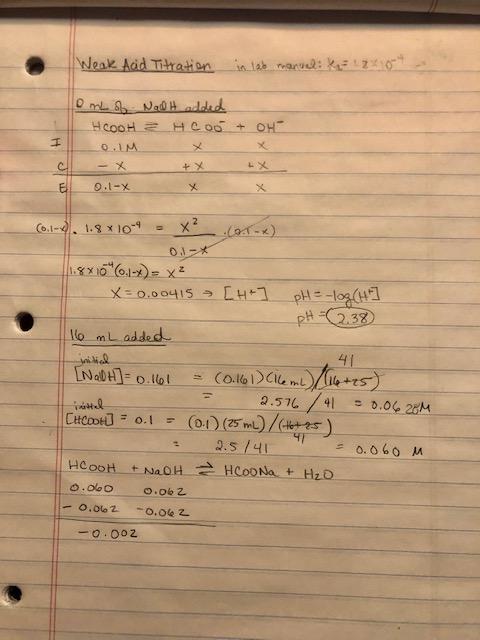 Weak Acid Titration in lab manual: Ka = 1.8 x 10⁻⁴
0 mL of NaOH added
HCOOH ⇌ HCOO⁻ + OH⁻
I 0.1M x x
C - x + x + x
E 0.1-x x x
(0.1-x) · 1.8 x 10⁻⁴ = x² / 0.1-x · (0.1-x)
1.8 x 10⁻⁴ (0.1-x) = x²
x = 0.00415 → [H+] pH = -log[H+]
pH = 2.38
16 mL added
initial 41
[NaOH] = 0.161 = (0.161)(16 mL) / (16+25)
= 2.576 / 41 = 0.0628M
initial
[HCOOH] = 0.1 = (0.1)(25 mL) / (16+25)
41
= 2.5 / 41 = 0.060 M
HCOOH + NaOH ⇌ HCOONa + H₂O
0.060 0.062
- 0.062 -0.062
-0.002